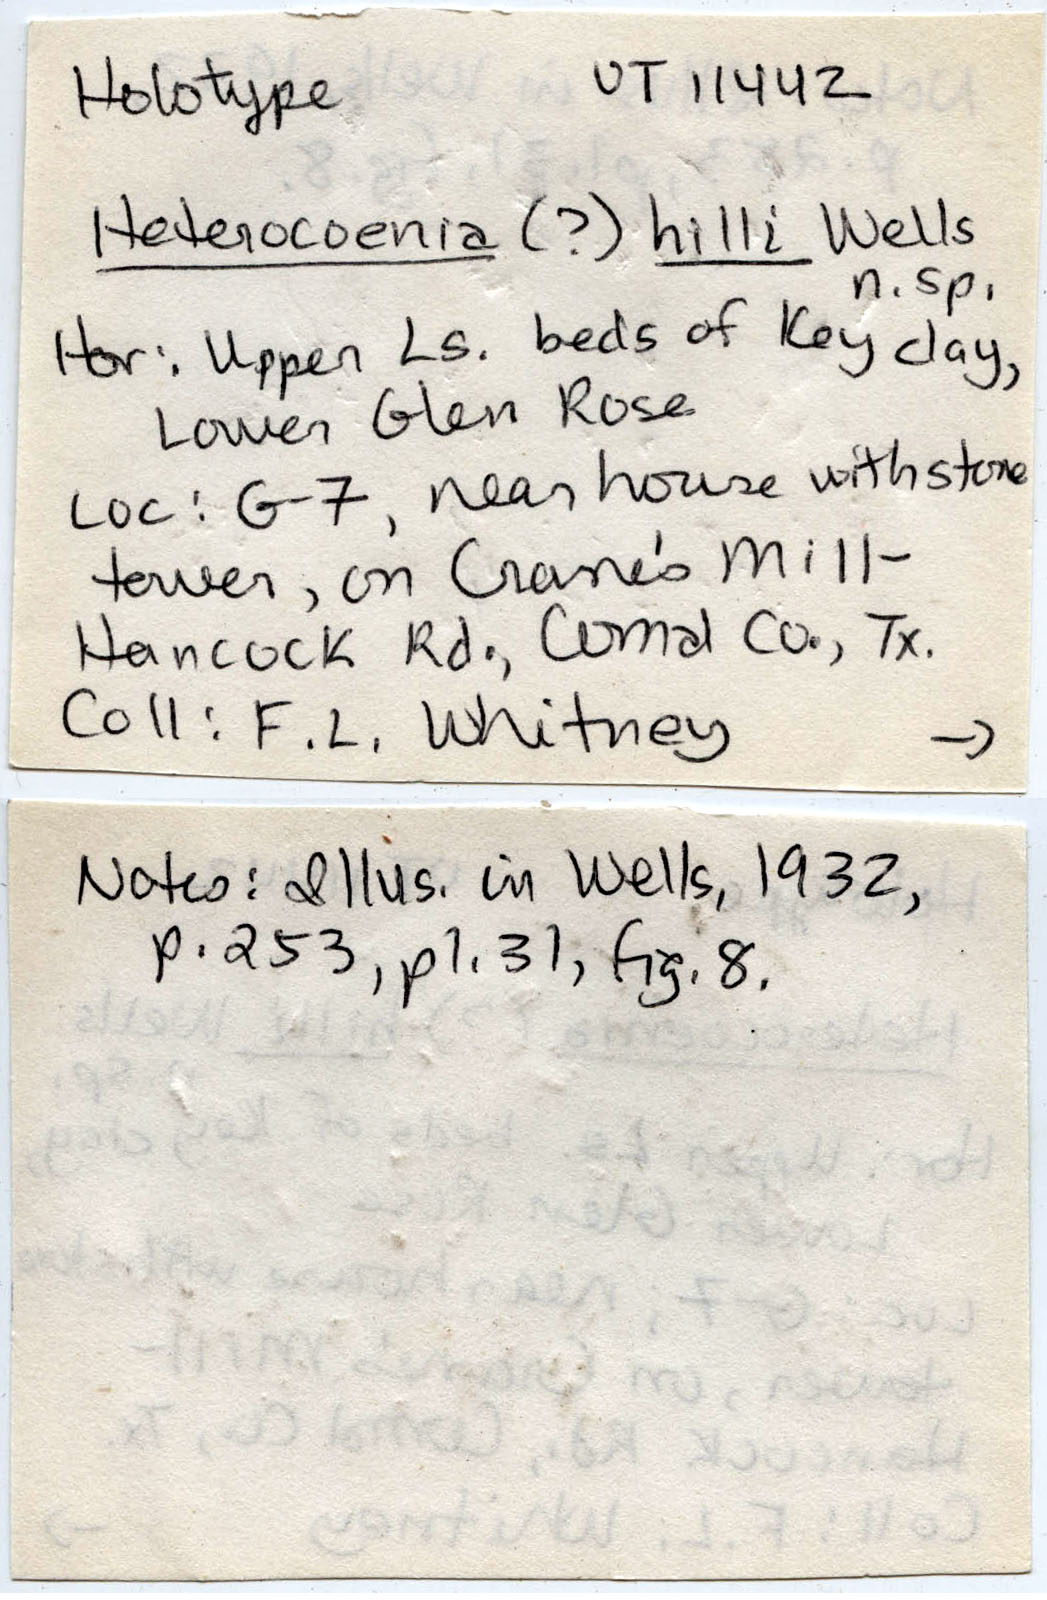 Holotype UT 11442
Heterocoenia (?) hilli Wells
n. sp.
Hor: Upper Ls. beds of Key clay,
Lower Glen Rose
Loc: G-7, near house with stone
tower, on Crane's Mill-
Hancock Rd., Comal Co., Tx.
Coll: F.L. Whitney →
Notes: Illus. in Wells, 1932,
p. 253, pl. 31, fig. 8.